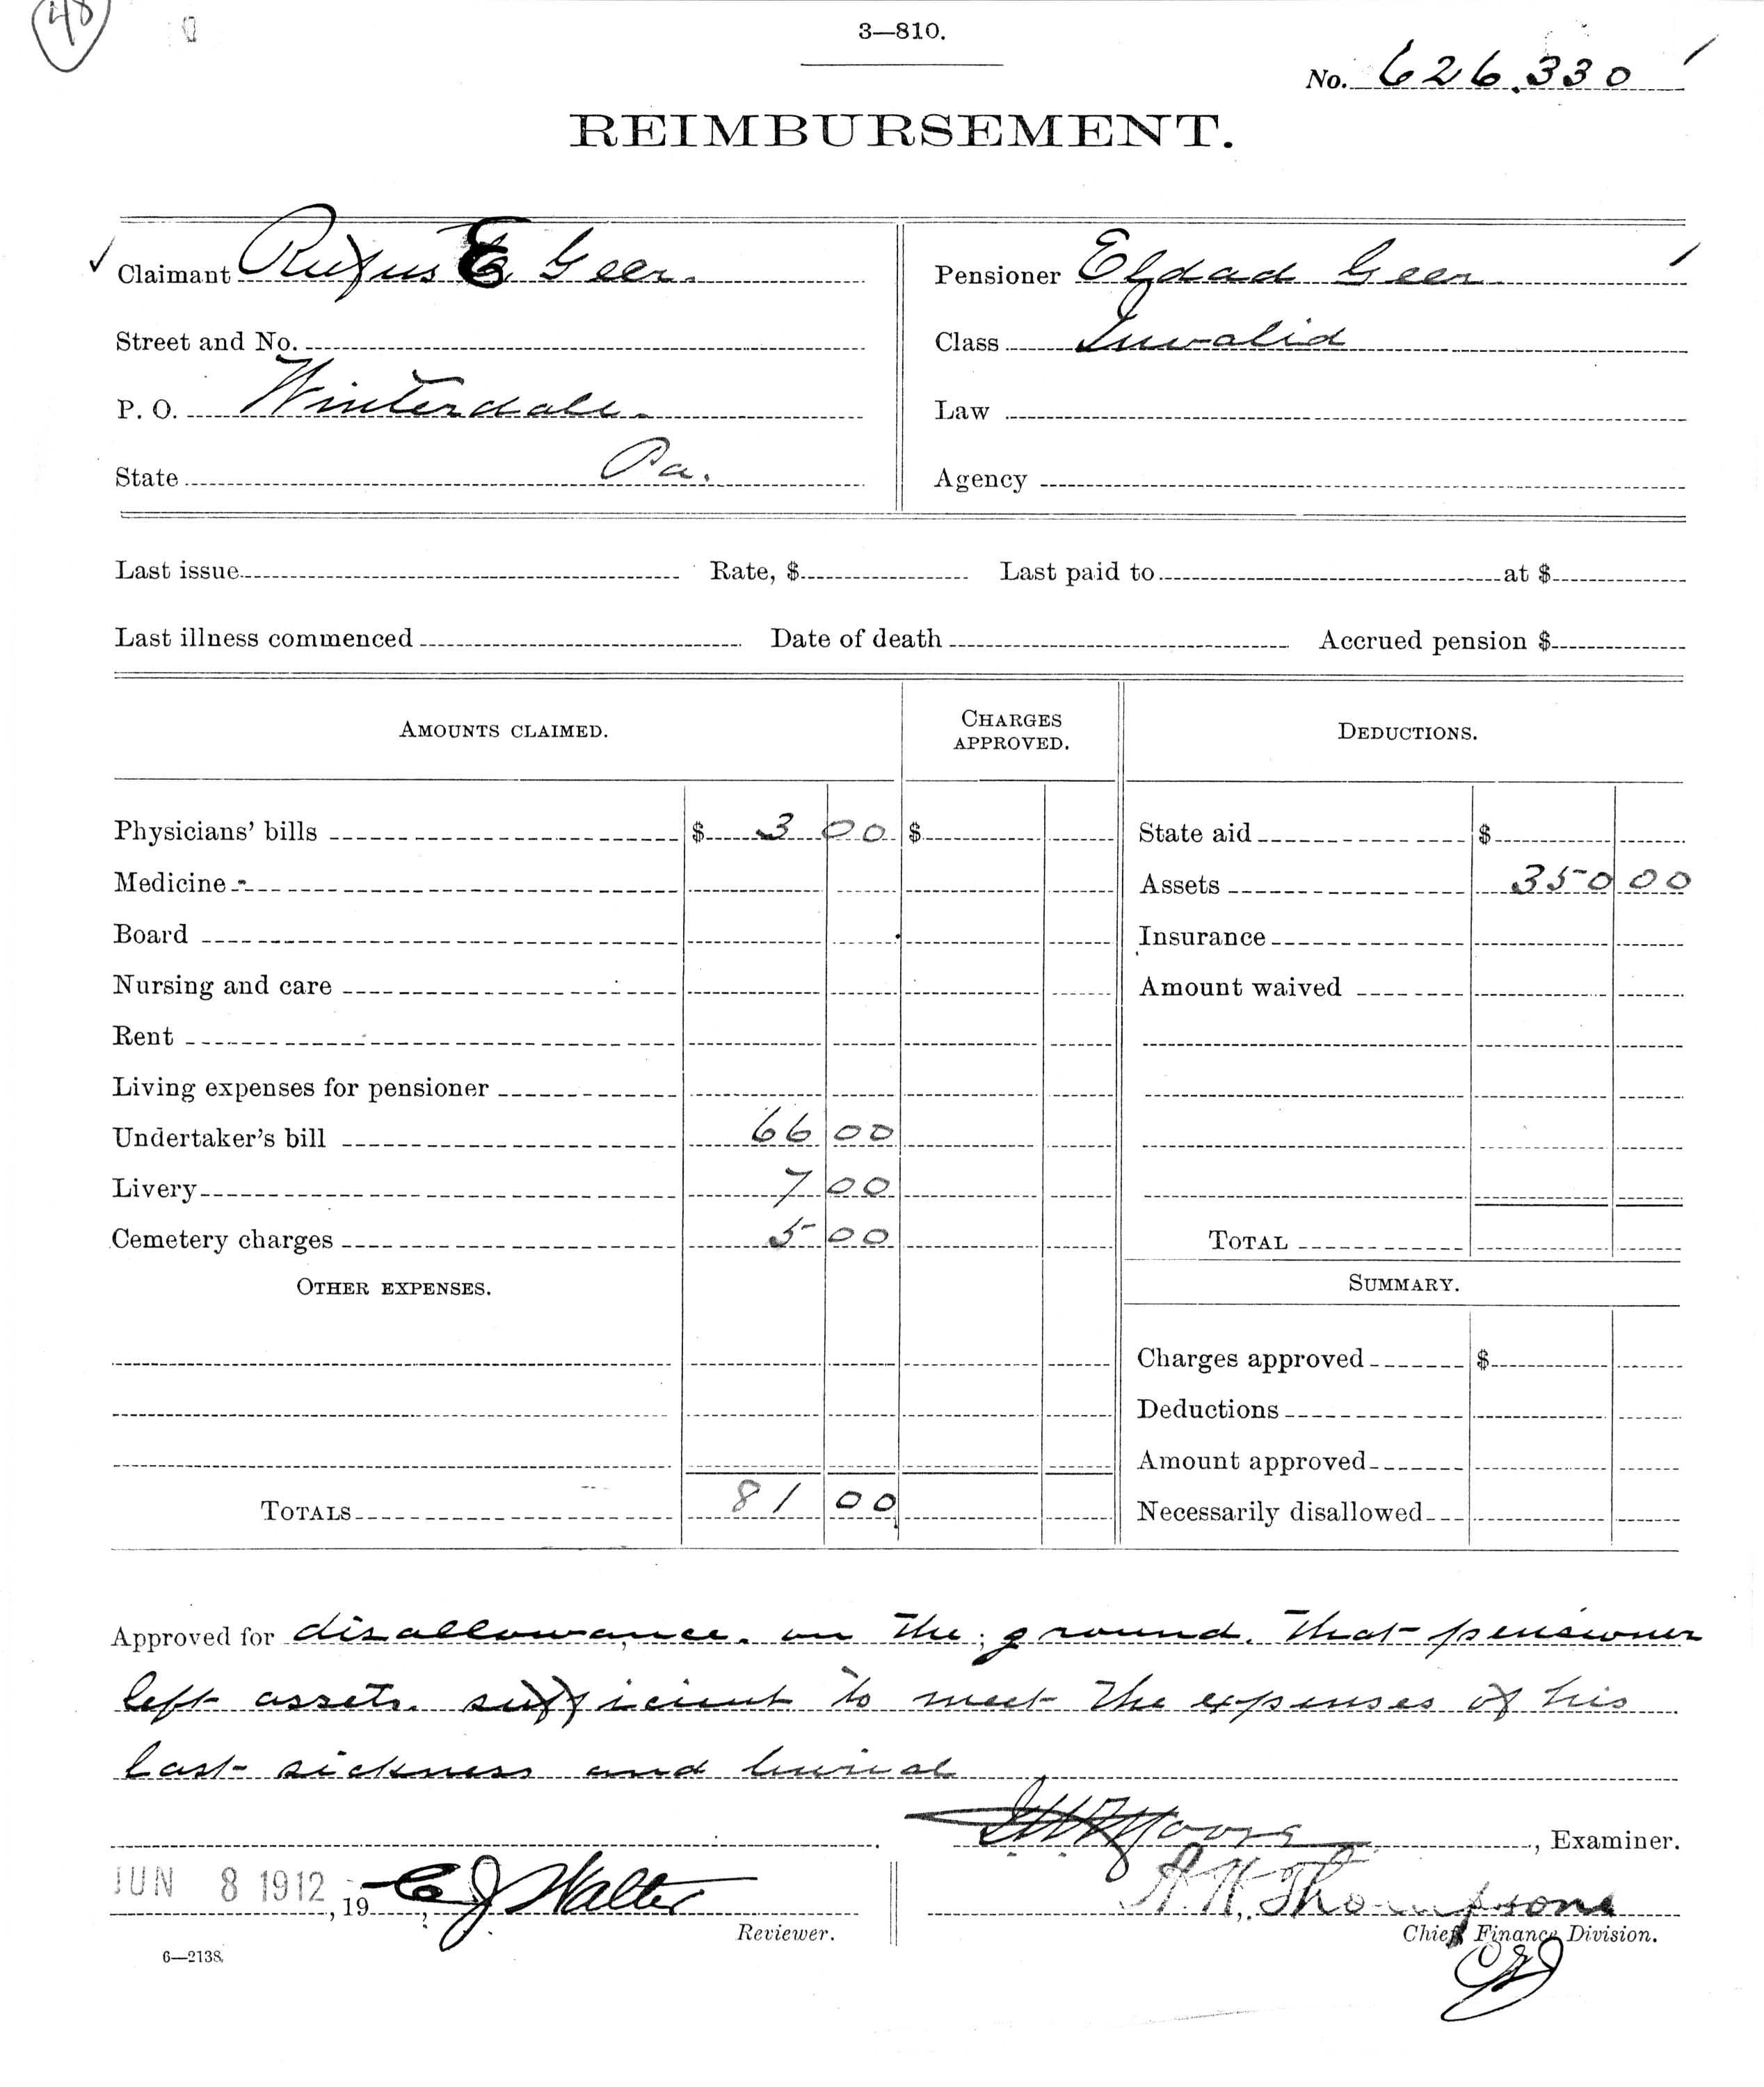 48
3—810.
No. 626.330
REIMBURSEMENT.
Claimant Rufus E. Geer.
Pensioner Eldad Geer
Street and No.
Class Invalid
P. O. Winterdale.
Law
State Pa.
Agency
Last issue Rate, $ Last paid to at $
Last illness commenced Date of death Accrued pension $
AMOUNTS CLAIMED. CHARGES APPROVED. DEDUCTIONS.
Physicians' bills $ 3 00 $ State aid $
Medicine Assets 350 00
Board Insurance
Nursing and care Amount waived
Rent
Living expenses for pensioner
Undertaker's bill 66 00
Livery 7 00
Cemetery charges 5 00 TOTAL
OTHER EXPENSES. SUMMARY.
Charges approved $
Deductions
Amount approved
TOTALS 81 00 Necessarily disallowed
Approved for disallowance. on the ground. that pensioner
left assets. sufficient to meet the expenses of his
last sickness and burial
Moore, Examiner.
JUN 8 1912, 19 , C J Walter
Reviewer.
A. H. Thompson
Chief Finance Division.
6—2138.